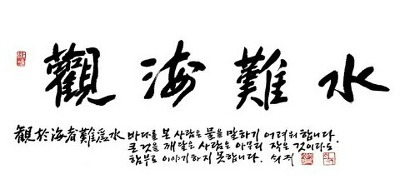 觀海難水
觀於海者難爲水 바다를 본 사람은 물을 말하기 어려워합니다.
큰 것을 깨달은 사람은 아무리 작은 것이라도
함부로 이야기하지 못합니다. 쇠귀